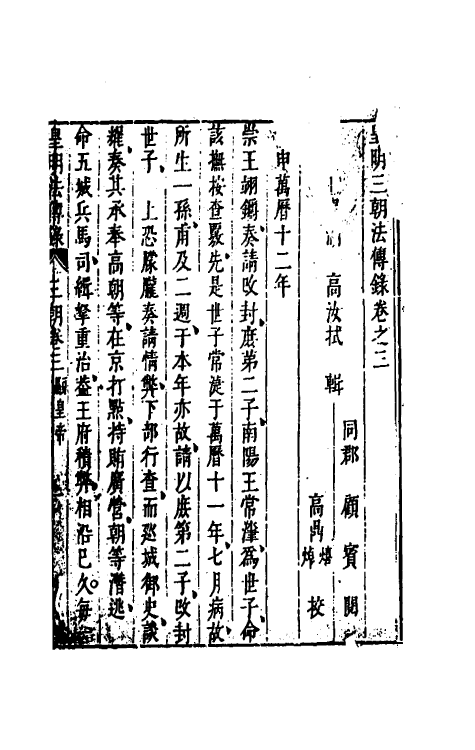 皇明三朝法傳錄卷之三
高汝拭 輯
同郡 顧賓 閱
高鼎 熺 焯 校
申萬曆十二年
崇王翊鑈奏請改封庶第二子南陽王常㵂爲世子命
該撫按查覈先是世子常㳛于萬曆十一年七月病故
所生一孫甫及二週于本年亦故請以庶第二子改封
世子 上恐朦朧奏請情弊下部行查而廵城御史談
耀奏其承奉高朝等在京打點持賄廣營朝等潛逃
命五城兵馬司緝拏重治益王府積弊相沿巳久每
皇明法傳錄 三朝卷三 顯皇帝